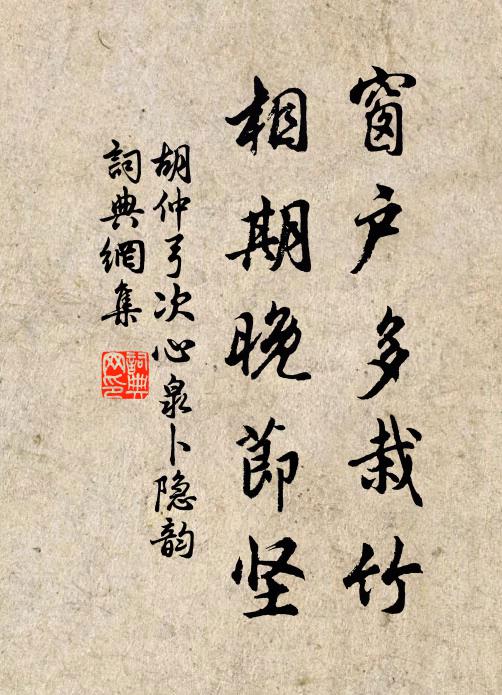 窗户多栽竹
相期晚節坚
胡仲弓次心泉卜隐韵
詞典網集
詞典
网印